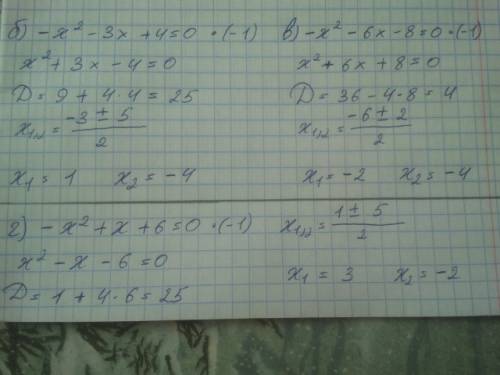 б) -x² - 3x + 4 = 0 · (-1)
x² + 3x - 4 = 0
D = 9 + 4·4 = 25
x₁,₂ = (-3 ± 5)/2
x₁ = 1 x₂ = -4
в) -x² - 6x - 8 = 0 · (-1)
x² + 6x + 8 = 0
D = 36 - 4·8 = 4
x₁,₂ = (-6 ± 2)/2
x₁ = -2 x₂ = -4
г) -x² + x + 6 = 0 · (-1)
x² - x - 6 = 0
D = 1 + 4·6 = 25
x₁,₂ = (1 ± 5)/2
x₁ = 3 x₂ = -2